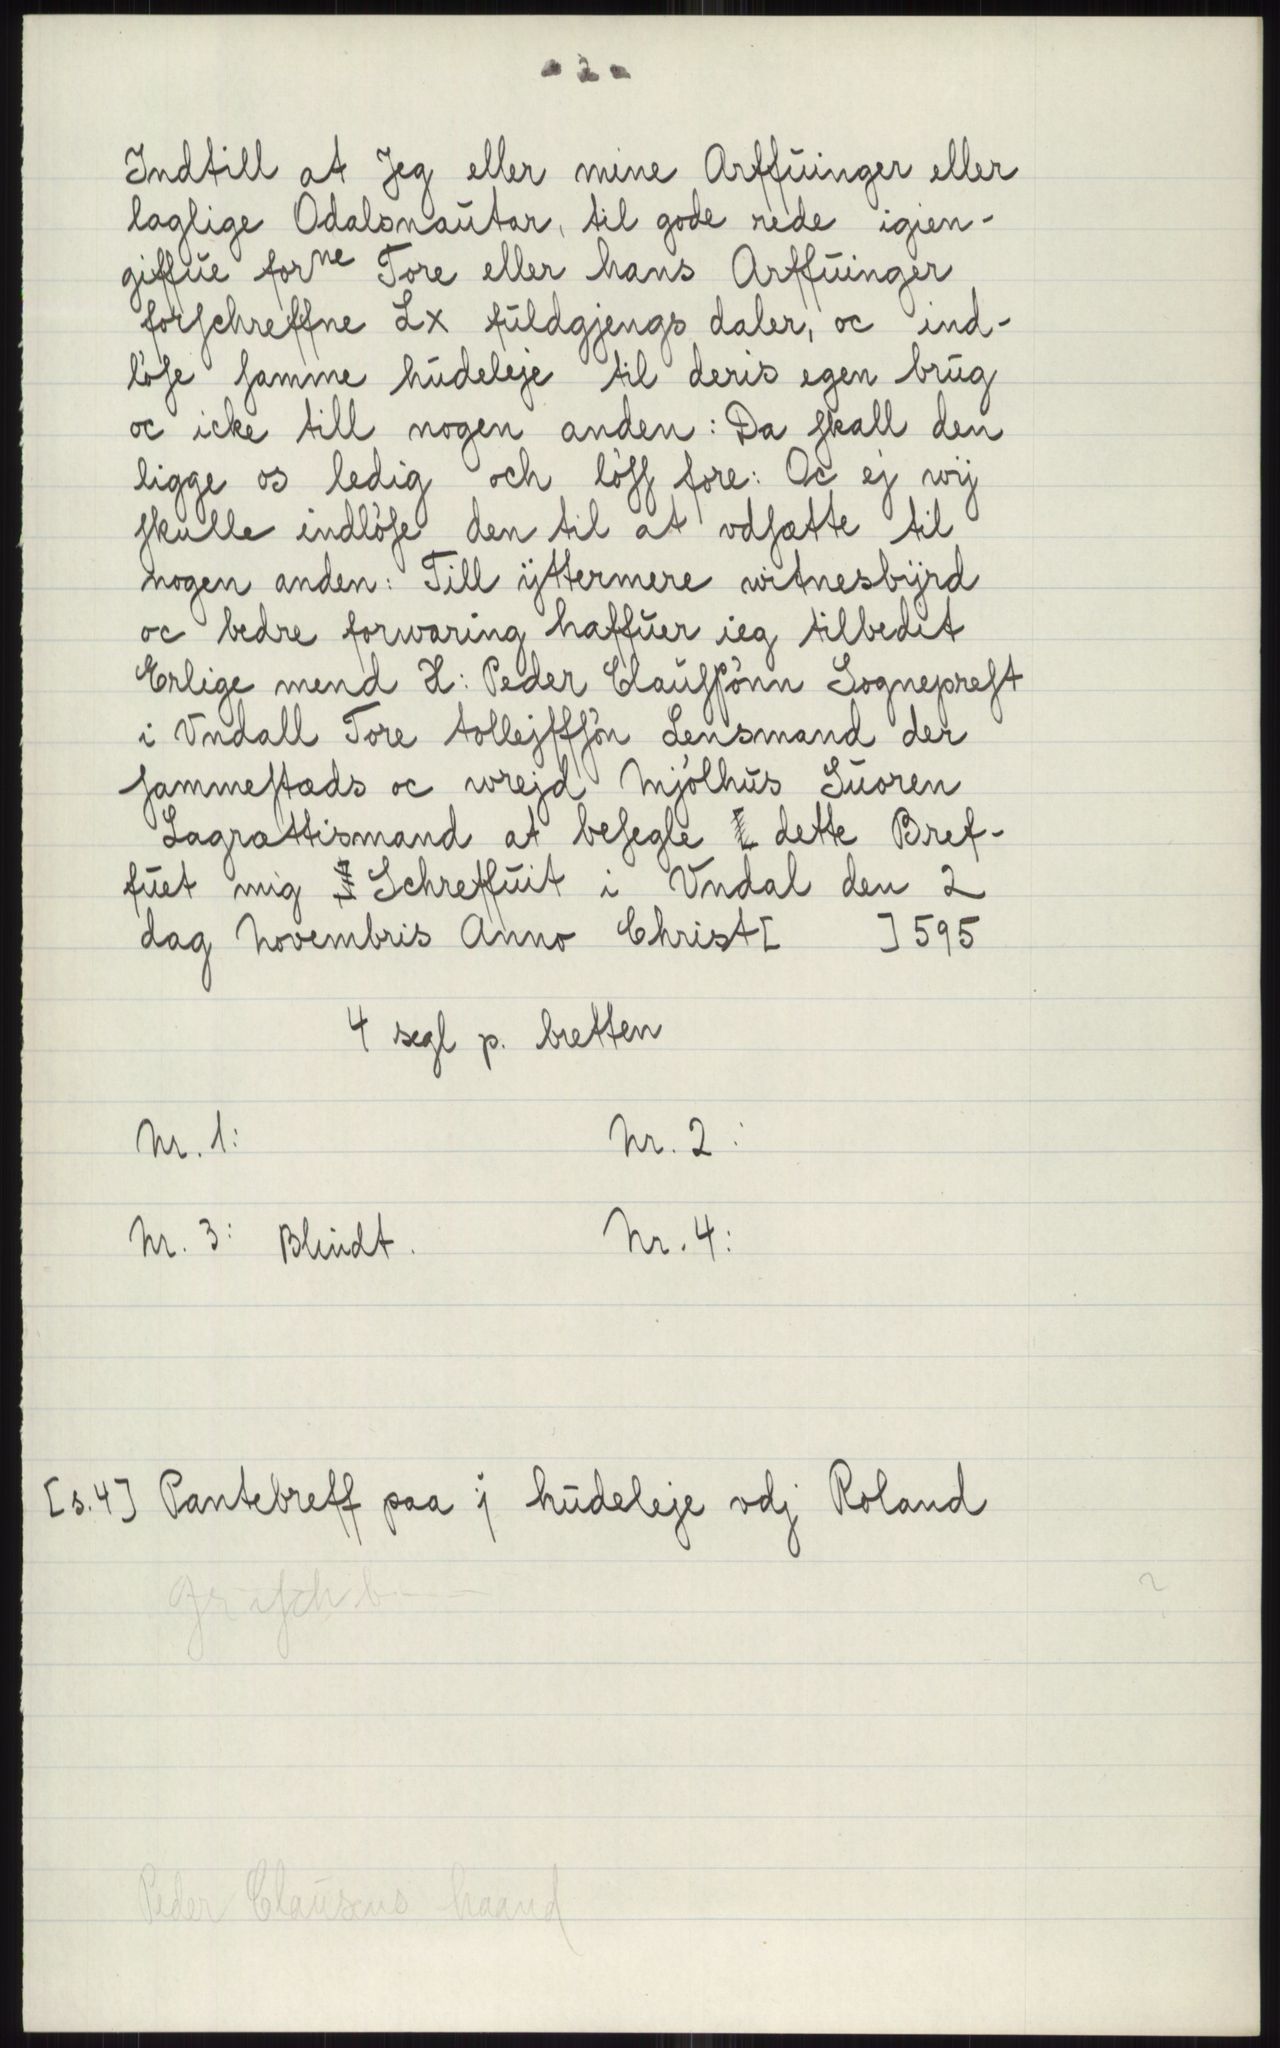 - 2 -
Indtill at Jeg eller mine Arffŭinger eller
laglige Odalsnaŭtar, til gode rede igien-
giffŭe forne Tore eller hans Arffŭinger
forſchreffne Lx fŭldgjengs daler, oc ind-
löſe ſamme hŭdeleje til deris egen brŭg
oc icke till nogen anden: Da ſkall den
ligge os ledig och löſſ fore: Oc ej wij
ſkulle indlöſe den til at vdſætte til
nogen anden: Till ÿttermere witnesbÿrd
oc bedre forwaring haffŭer ieg tilbedit
Erlige mend H: Peder Claŭſſönn Sognepreſt
i Vndall Tore tollejffſön Lensmand der
ſammeſtæds oc wrejd Mjölhŭs Sŭoren
Lagrættismand at beſegle dette Bref-
fŭet mig Schreffŭit i Vndal den 2
dag Novembris Anno Christ[ ]595
4 segl p. bretten
Nr. 1: Nr. 2:
Nr. 3: Blindt. Nr. 4:
[s.4] Pantebreff paa j hŭdeleje vdj Roland
Peder Claŭsens haand